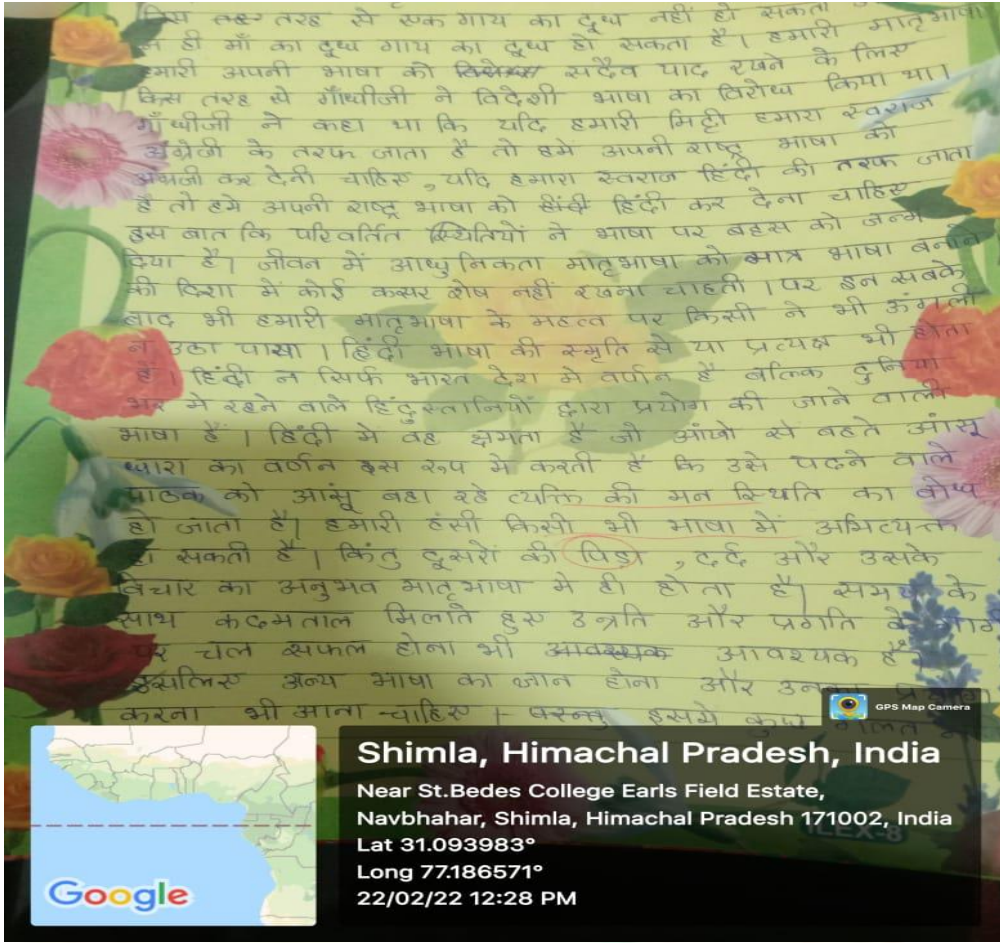 किस तरह से एक गाय का दूध नहीं हो सकता
न ही माँ का दूध गाय का दूध हो सकता है। हमारी मातृभाषा
हमारी अपनी भाषा को सदैव याद रखने के लिए
किस तरह से गाँधीजी ने विदेशी भाषा का विरोध किया था।
गाँधीजी ने कहा था कि यदि हमारी मिट्टी हमारा स्वराज
अंग्रेजी के तरफ जाता है तो हमे अपनी राष्ट्र भाषा को
अंग्रजी कर देनी चाहिए, यदि हमारा स्वराज हिंदी की तरफ जाता
है तो हमे अपनी राष्ट्र भाषा को हिंदी कर देना चाहिए
इस बात कि परिवर्तित स्थितियों ने भाषा पर बहस को जन्म
दिया है। जीवन में आधुनिकता मातृभाषा को मात्र भाषा बनाने
की दिशा में कोई कसर शेष नहीं रखना चाहती। पर इन सबके
बाद भी हमारी मातृभाषा के महत्व पर किसी ने भी उंगली
न उठा पाया। हिंदी भाषा की स्मृति से या प्रत्यक्ष भी होता
है। हिंदी न सिर्फ भारत देश मे वर्णन है बल्कि दुनिया
भर मे रहने वाले हिंदुस्तानियों द्वारा प्रयोग की जाने वाली
भाषा है। हिंदी मे वह क्षमता है जो आंखो से बहते आंसू
धारा का वर्णन इस रूप मे करती है कि उसे पढने वाले
पाठक को आंसू बहा रहे व्यक्ति की मन स्थिति का बोध
हो जाता है। हमारी हंसी किसी भी भाषा में अभिव्यक्त
हो सकती है। किंतु दूसरों की पिडा, दर्द और उसके
विचार का अनुभव मातृभाषा मे ही होता है। समय के
साथ कदमताल मिलाते हुए उन्नति और प्रगति के मार्ग
पर चल सफल होना भी आवश्यक है।
इसलिए अन्य भाषा का ज्ञान होना और उनका
करना भी आना चाहिए। परन्तु इसमे कुछ गलत
GPS Map Camera
Shimla, Himachal Pradesh, India
Near St.Bedes College Earls Field Estate,
Navbhahar, Shimla, Himachal Pradesh 171002, India
Lat 31.093983°
Long 77.186571°
22/02/22 12:28 PM
Google